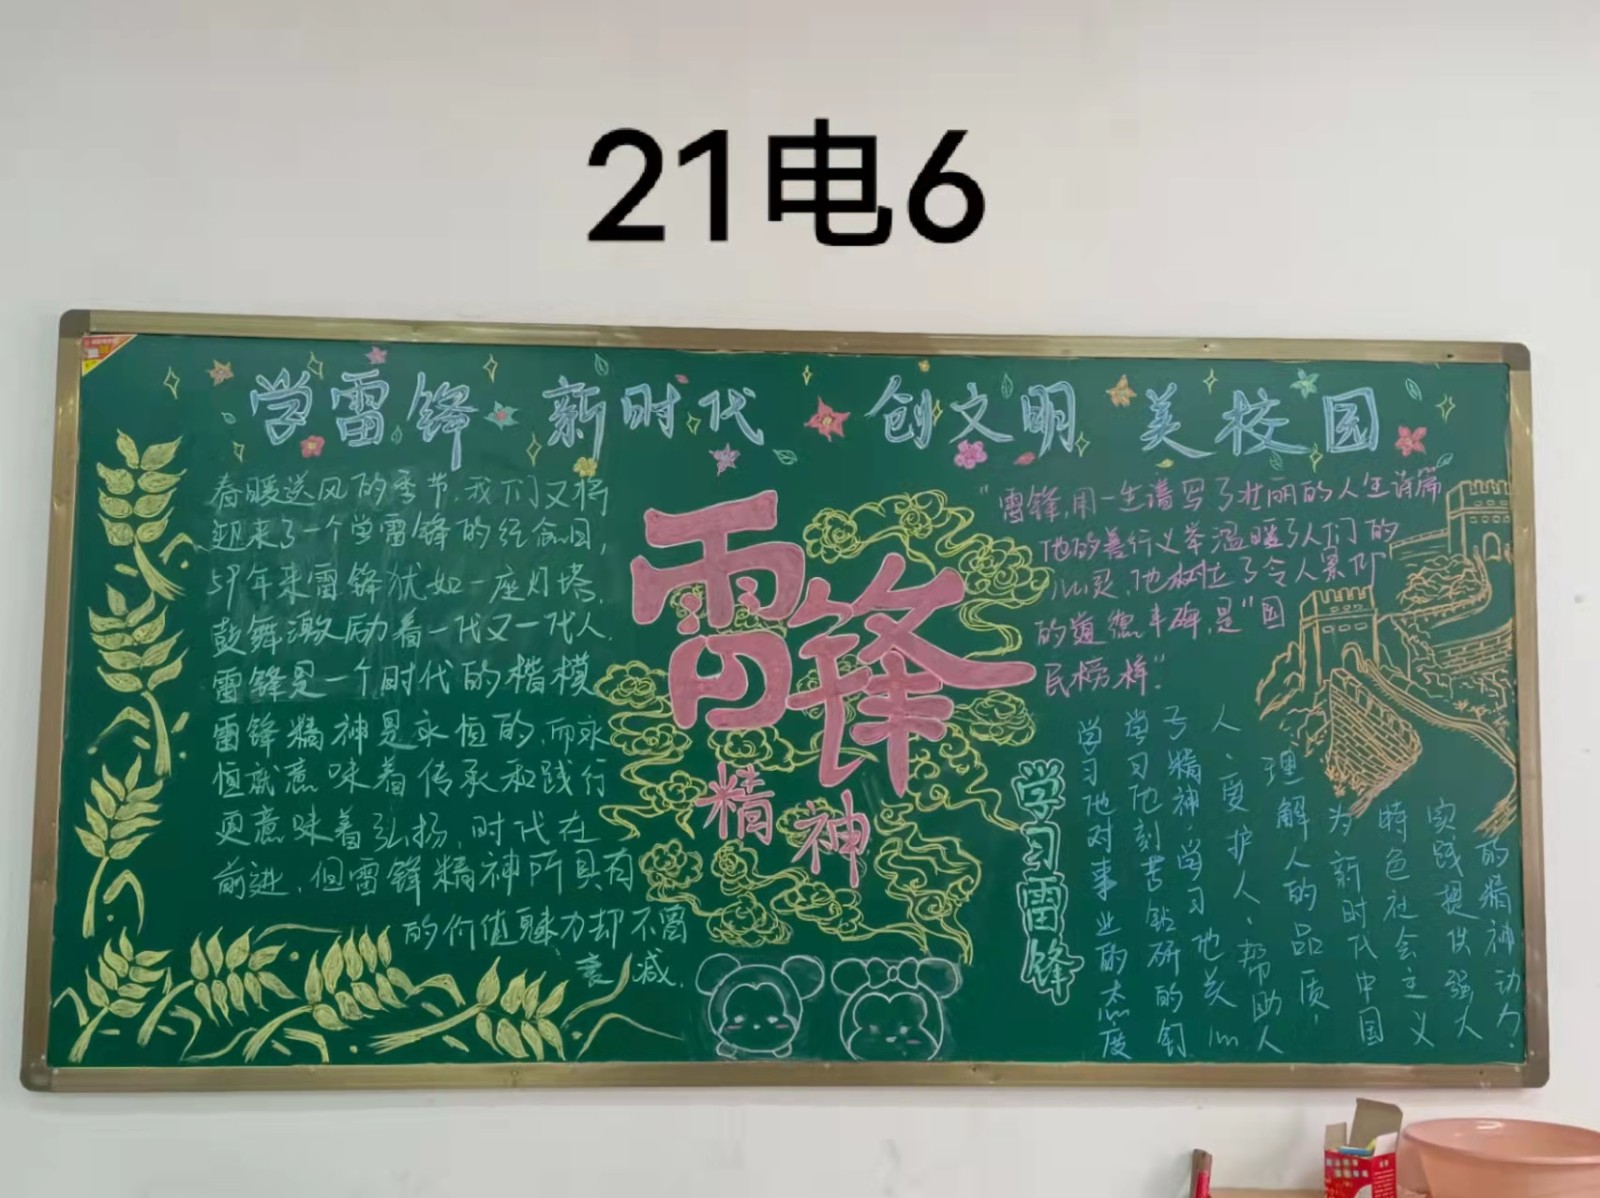 21电6
学雷锋 新时代 创文明 美校园
春暖送风的季节,我们又将
迎来了一个学雷锋的纪念日,
59年来雷锋犹如一座灯塔,
鼓舞激励着一代又一代人.
雷锋是一个时代的楷模
雷锋精神是永恒的,而永
恒就意味着传承和践行
更意味着弘扬,时代在
前进,但雷锋精神所具有
的价值魅力却不曾
衰减.
雷锋
精神
"雷锋,用一生谱写了壮丽的人生诗篇
他的善行义举温暖了人们的
心灵,他树立了令人景仰
的道德丰碑,是"国
民榜样".
学习雷锋
学习他对事业的态度
学习他刻苦钻研的钉
子精神,学习他关心
人、爱护人、帮助人
理解人的品质,
为新时代中国
特色社会主义
实践提供强大
的精神动力.